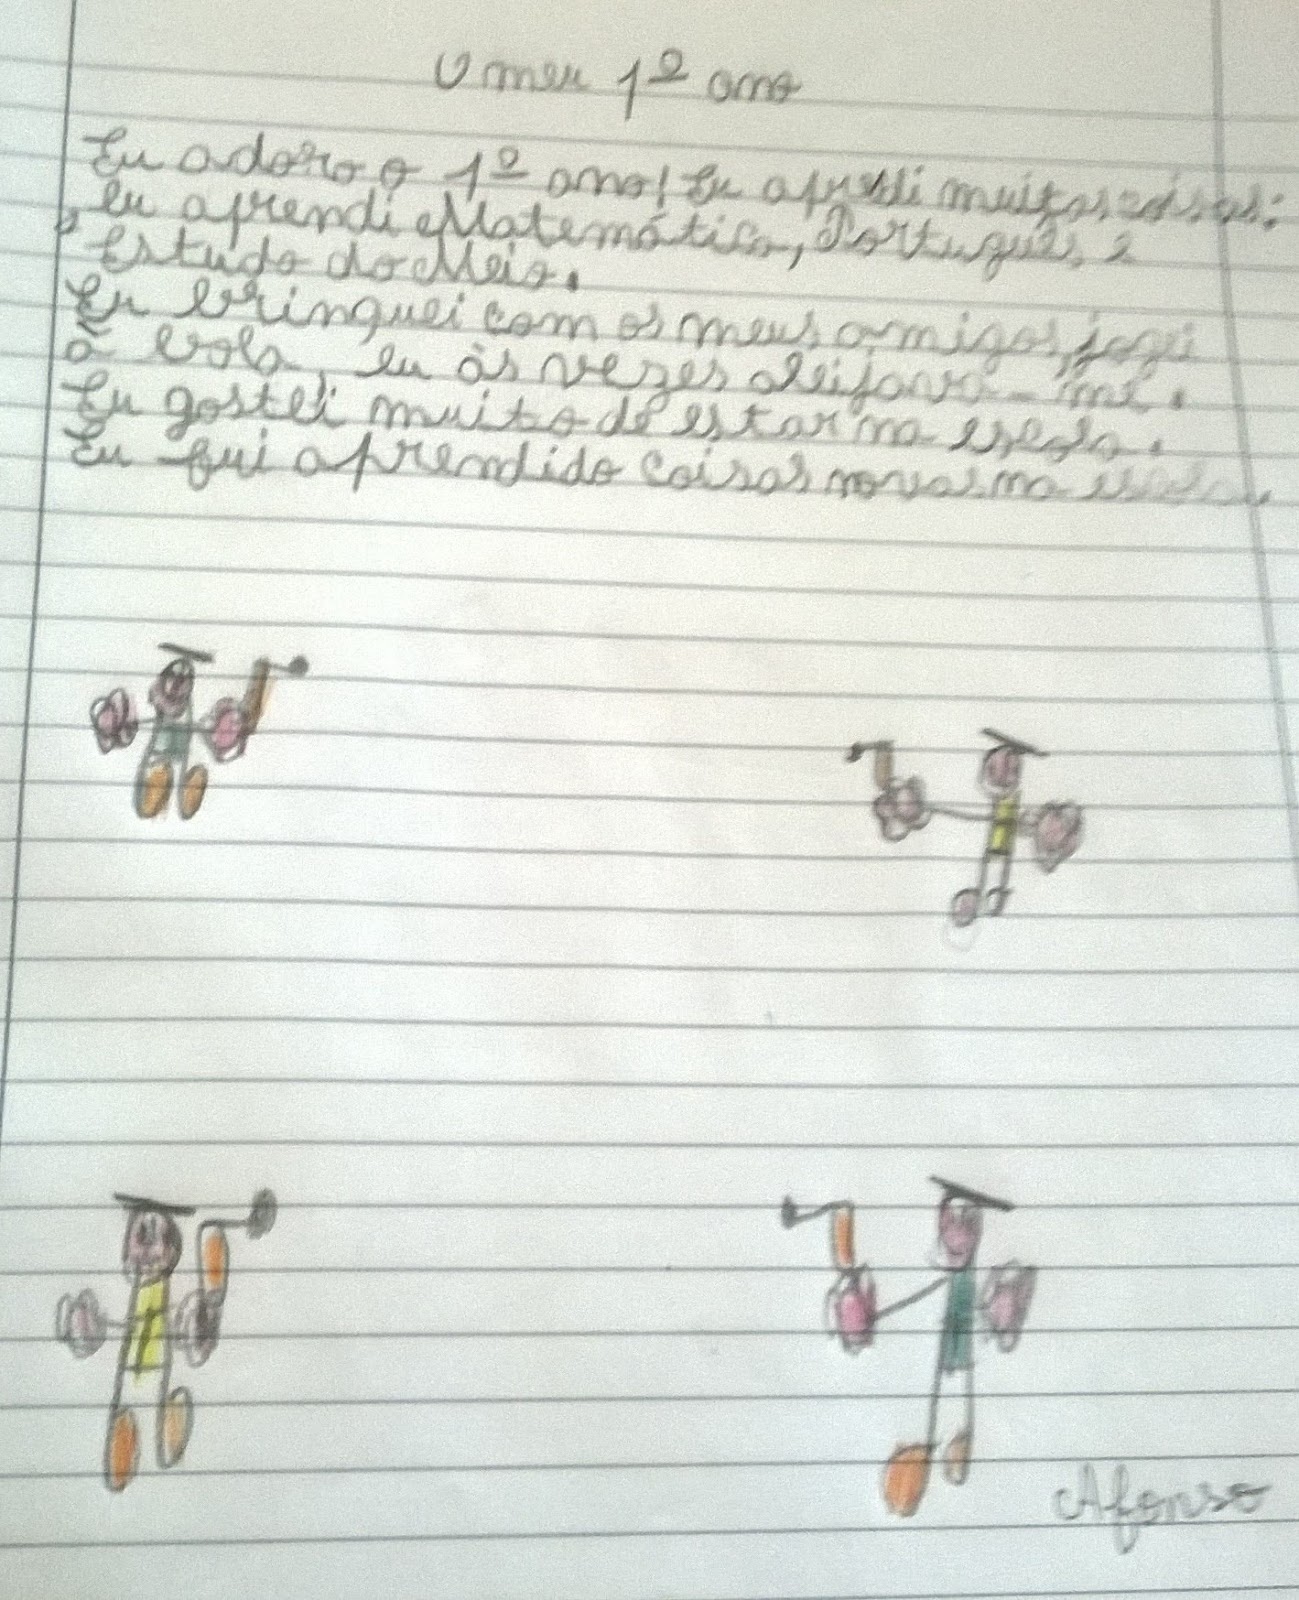 O meu 1º ano
Eu adoro o 1º ano! Eu aprendi muitas coisas:
eu aprendi Matemática, Português, e
Estudo do Meio.
Eu brinquei com os meus amigos, jogei
à bola, eu às vezes aleijava-me.
Eu gostei muito de estar na escola.
Eu fui aprendido coisas novas na escola.
Afonso